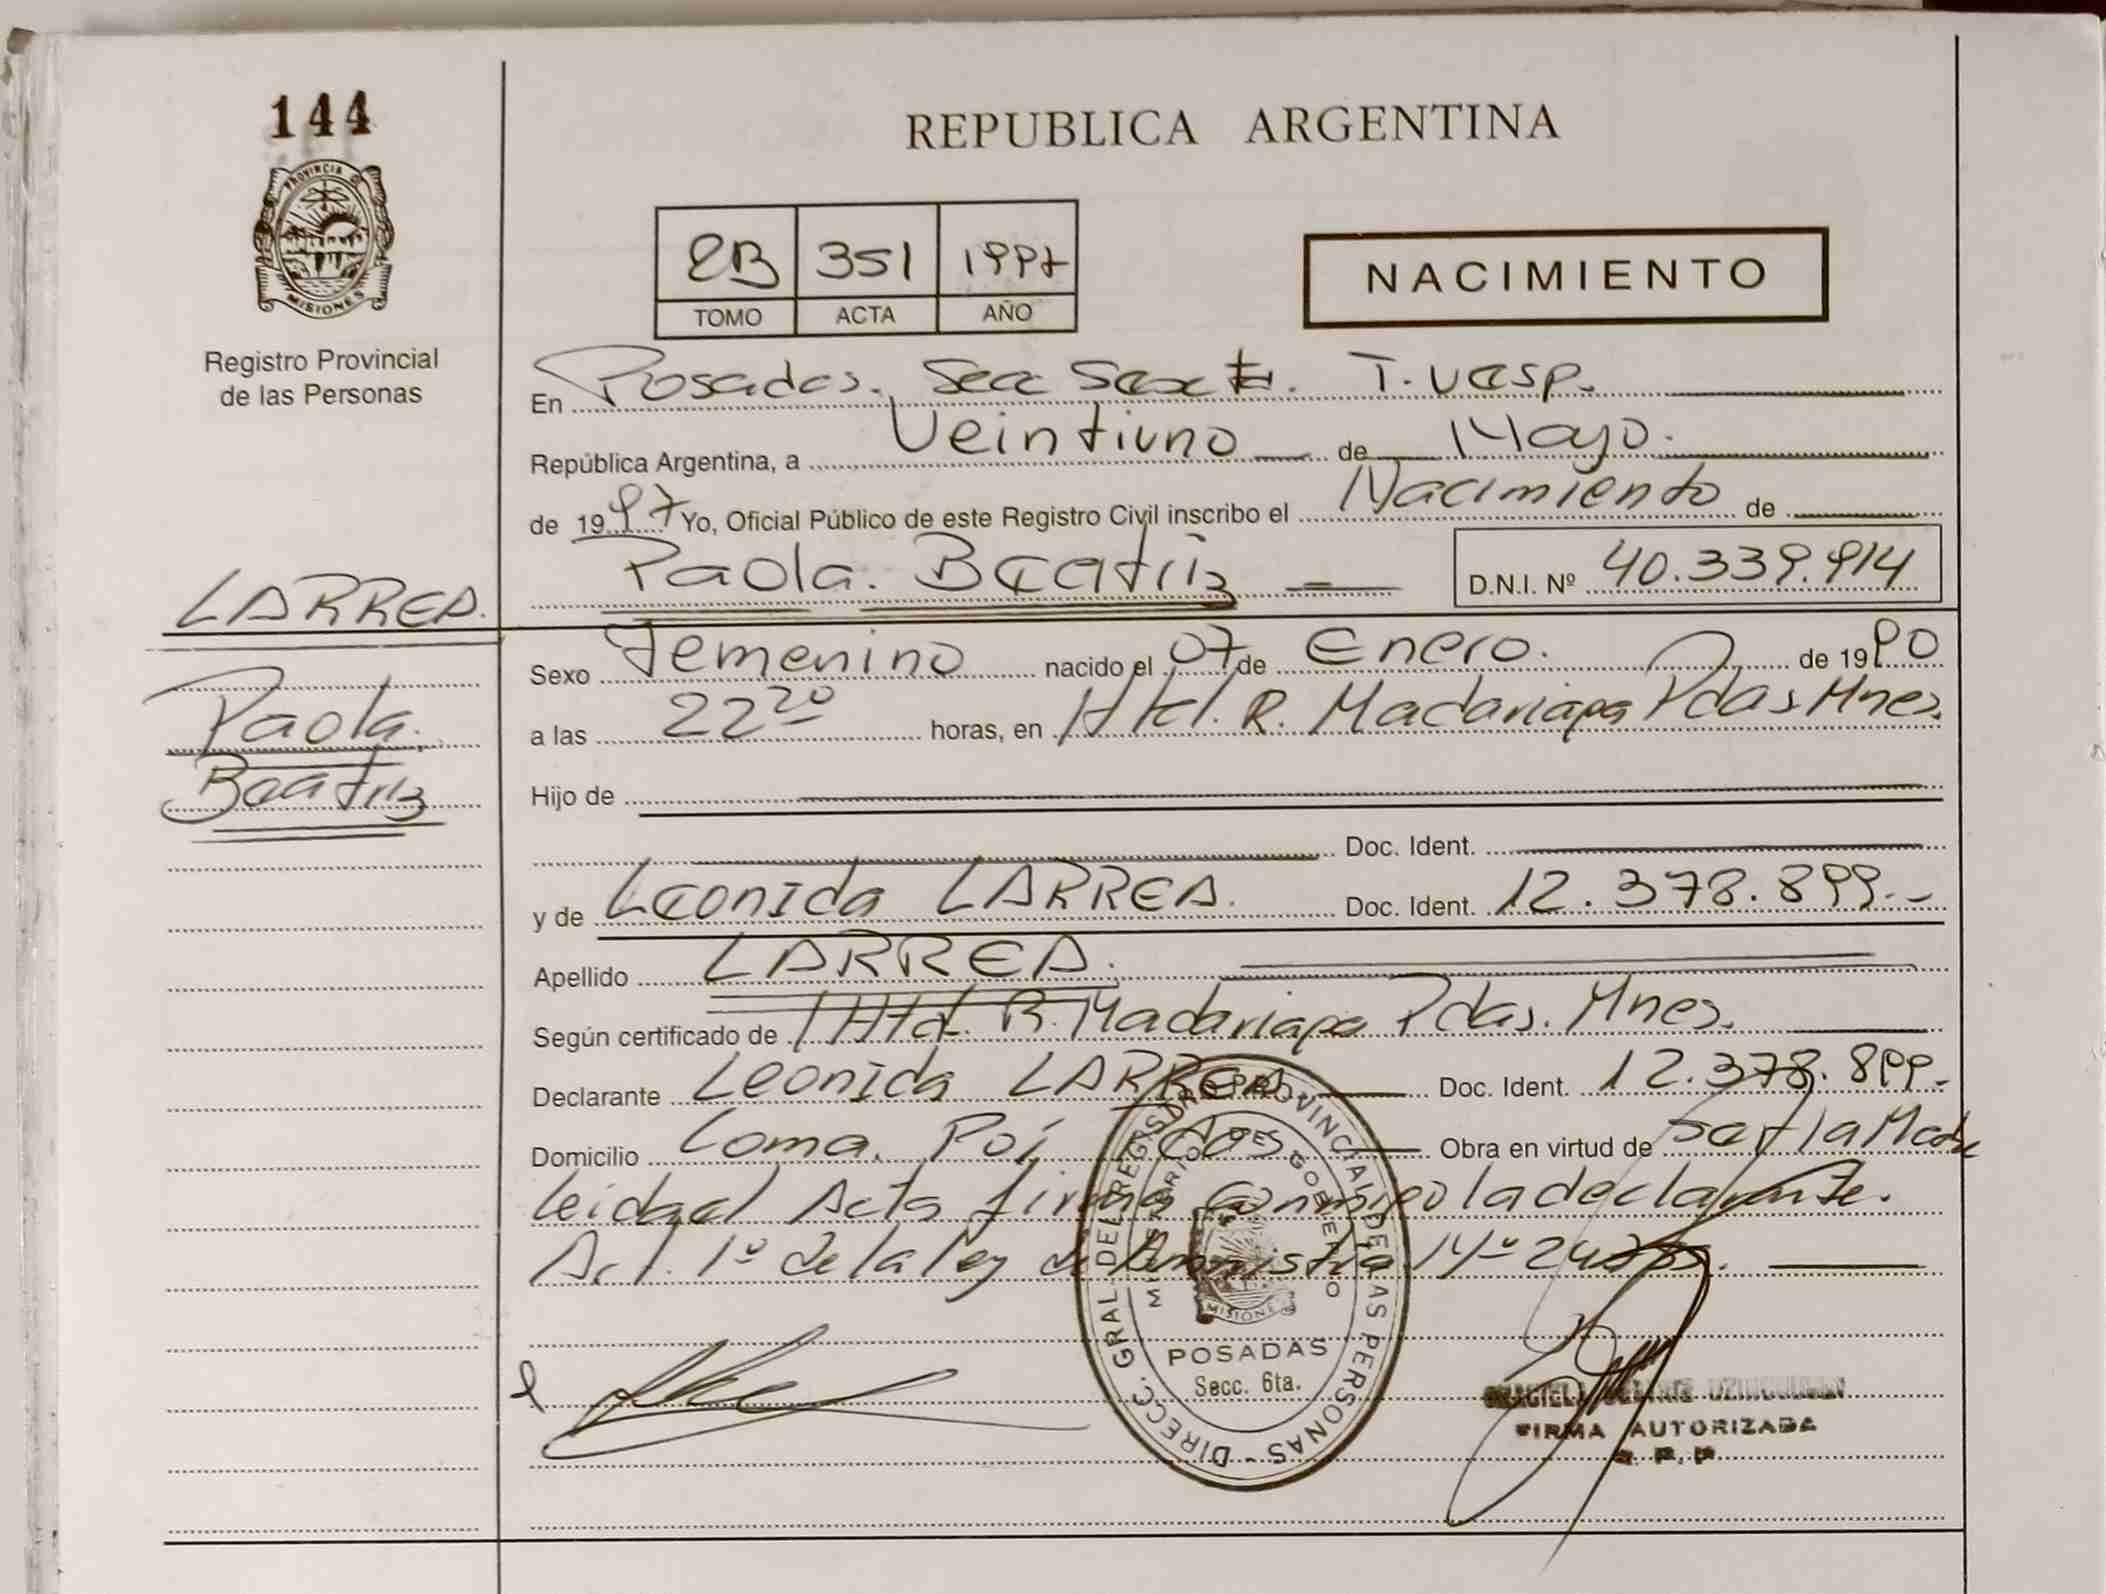 144
REPUBLICA ARGENTINA
PROVINCIA DE
MISIONES
Registro Provincial
de las Personas
2B 351 1997
TOMO ACTA AÑO
NACIMIENTO
En Posadas. Secc Sexta. T. Vesp.
República Argentina, a Veintiuno de Mayo.
de 1997 Yo, Oficial Público de este Registro Civil inscribo el Nacimiento de
Paola. Beatriz D.N.I. Nº 40.339.914
LARREA.
Paola.
Beatriz
Sexo Femenino nacido el 07 de Enero. de 1990
a las 22 20 horas, en Htal. R. Madariaga Pdas Mnes.
Hijo de
Doc. Ident.
y de Leonida LARREA. Doc. Ident. 12.378.899.-
Apellido LARREA.
Según certificado de Htal. R. Madariaga Pdas. Mnes.
Declarante Leonida LARREA Doc. Ident. 12.378.899.-
Domicilio Loma Poi Obra en virtud de ser la Madre
leida el Acta firma conmigo la declarante.
Art. 1º de la ley de Amnistia Nº
DIRECC. GRAL. DEL REGISTRO PROVINCIAL DE LAS PERSONAS -
MINISTERIO DE GOBIERNO
MISIONES
POSADAS
Secc. 6ta.
FIRMA AUTORIZADA